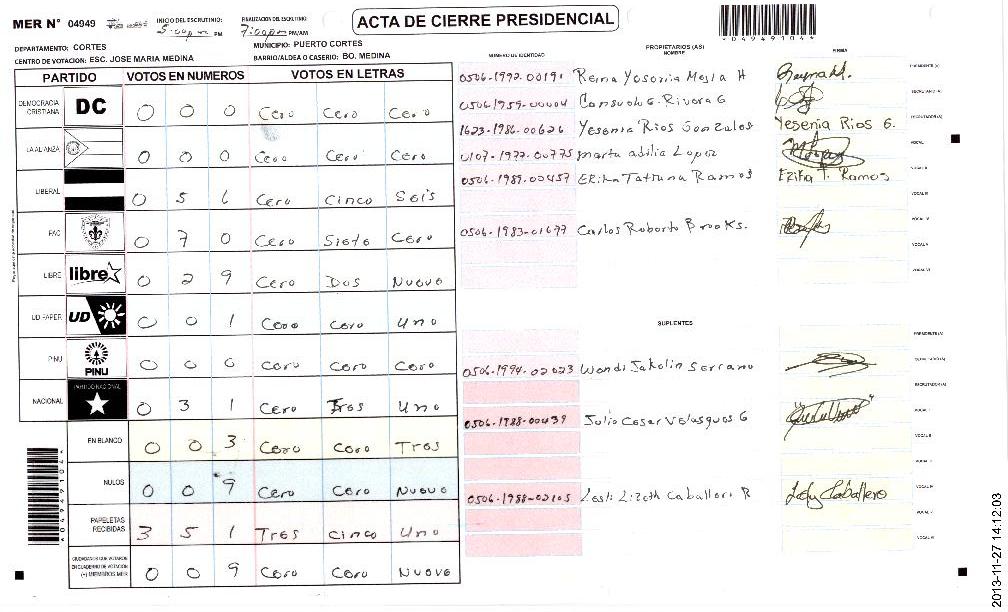 MER N° 04949
INICIO DEL ESCRUTINIO: 5:00 pm PM
FINALIZACION DEL ESCRUTINIO: 7:00 pm PM/AM
ACTA DE CIERRE PRESIDENCIAL
*049491044*
DEPARTAMENTO: CORTES
MUNICIPIO: PUERTO CORTES
CENTRO DE VOTACION: ESC. JOSE MARIA MEDINA
BARRIO/ALDEA O CASERIO: BO. MEDINA
PARTIDO VOTOS EN NUMEROS VOTOS EN LETRAS
DEMOCRACIA CRISTIANA DC 0 0 0 Cero Cero Cero
LA ALIANZA 0 0 0 Cero Cero Cero
LIBERAL 0 5 6 Cero Cinco Seis
PAC 0 7 0 Cero Siete Cero
LIBRE libre 0 2 9 Cero Dos Nueve
UD FAPER UD 0 0 1 Cero Cero Uno
PINU PINU 0 0 0 Cero Cero Cero
NACIONAL PARTIDO NACIONAL 0 3 1 Cero Tres Uno
EN BLANCO 0 0 3 Cero Cero Tres
NULOS 0 0 9 Cero Cero Nueve
PAPELETAS RECIBIDAS 3 5 1 Tres Cinco Uno
CIUDADANOS QUE VOTARON EN CUADERNO DE VOTACION (+) MIEMBROS MER 0 0 9 Cero Cero Nueve
NUMERO DE IDENTIDAD
PROPIETARIOS (AS)
NOMBRE
FIRMA
0506-1992-00191 Reina Yosonia Mejia H
PRESIDENTE (A)
0506-1959-00004 Consuelo G. Rivera G
SECRETARIO (A)
1623-1986-00626 Yesenia Rios Gonzales Yesenia Rios G.
ESCRUTADOR (A)
0107-1977-00775 Marta adilia Lopez
VOCAL I
0506-1989-00457 Erika Tatiana Ramos Erika T. Ramos
VOCAL II
VOCAL III
0506-1983-01677 Carlos Roberto Brooks.
VOCAL IV
VOCAL V
VOCAL VI
SUPLENTES
PRESIDENTE (A)
0506-1994-02023 Wendi Jakolin Serrano
SECRETARIO (A)
ESCRUTADOR (A)
0506-1988-00439 Julio Cesar Velasques G
VOCAL I
VOCAL II
VOCAL III
0506-1988-02105 Lesli Lizeth Caballero R Lesly Caballero
VOCAL IV
VOCAL V
VOCAL VI
2013-11-27 14:12:03